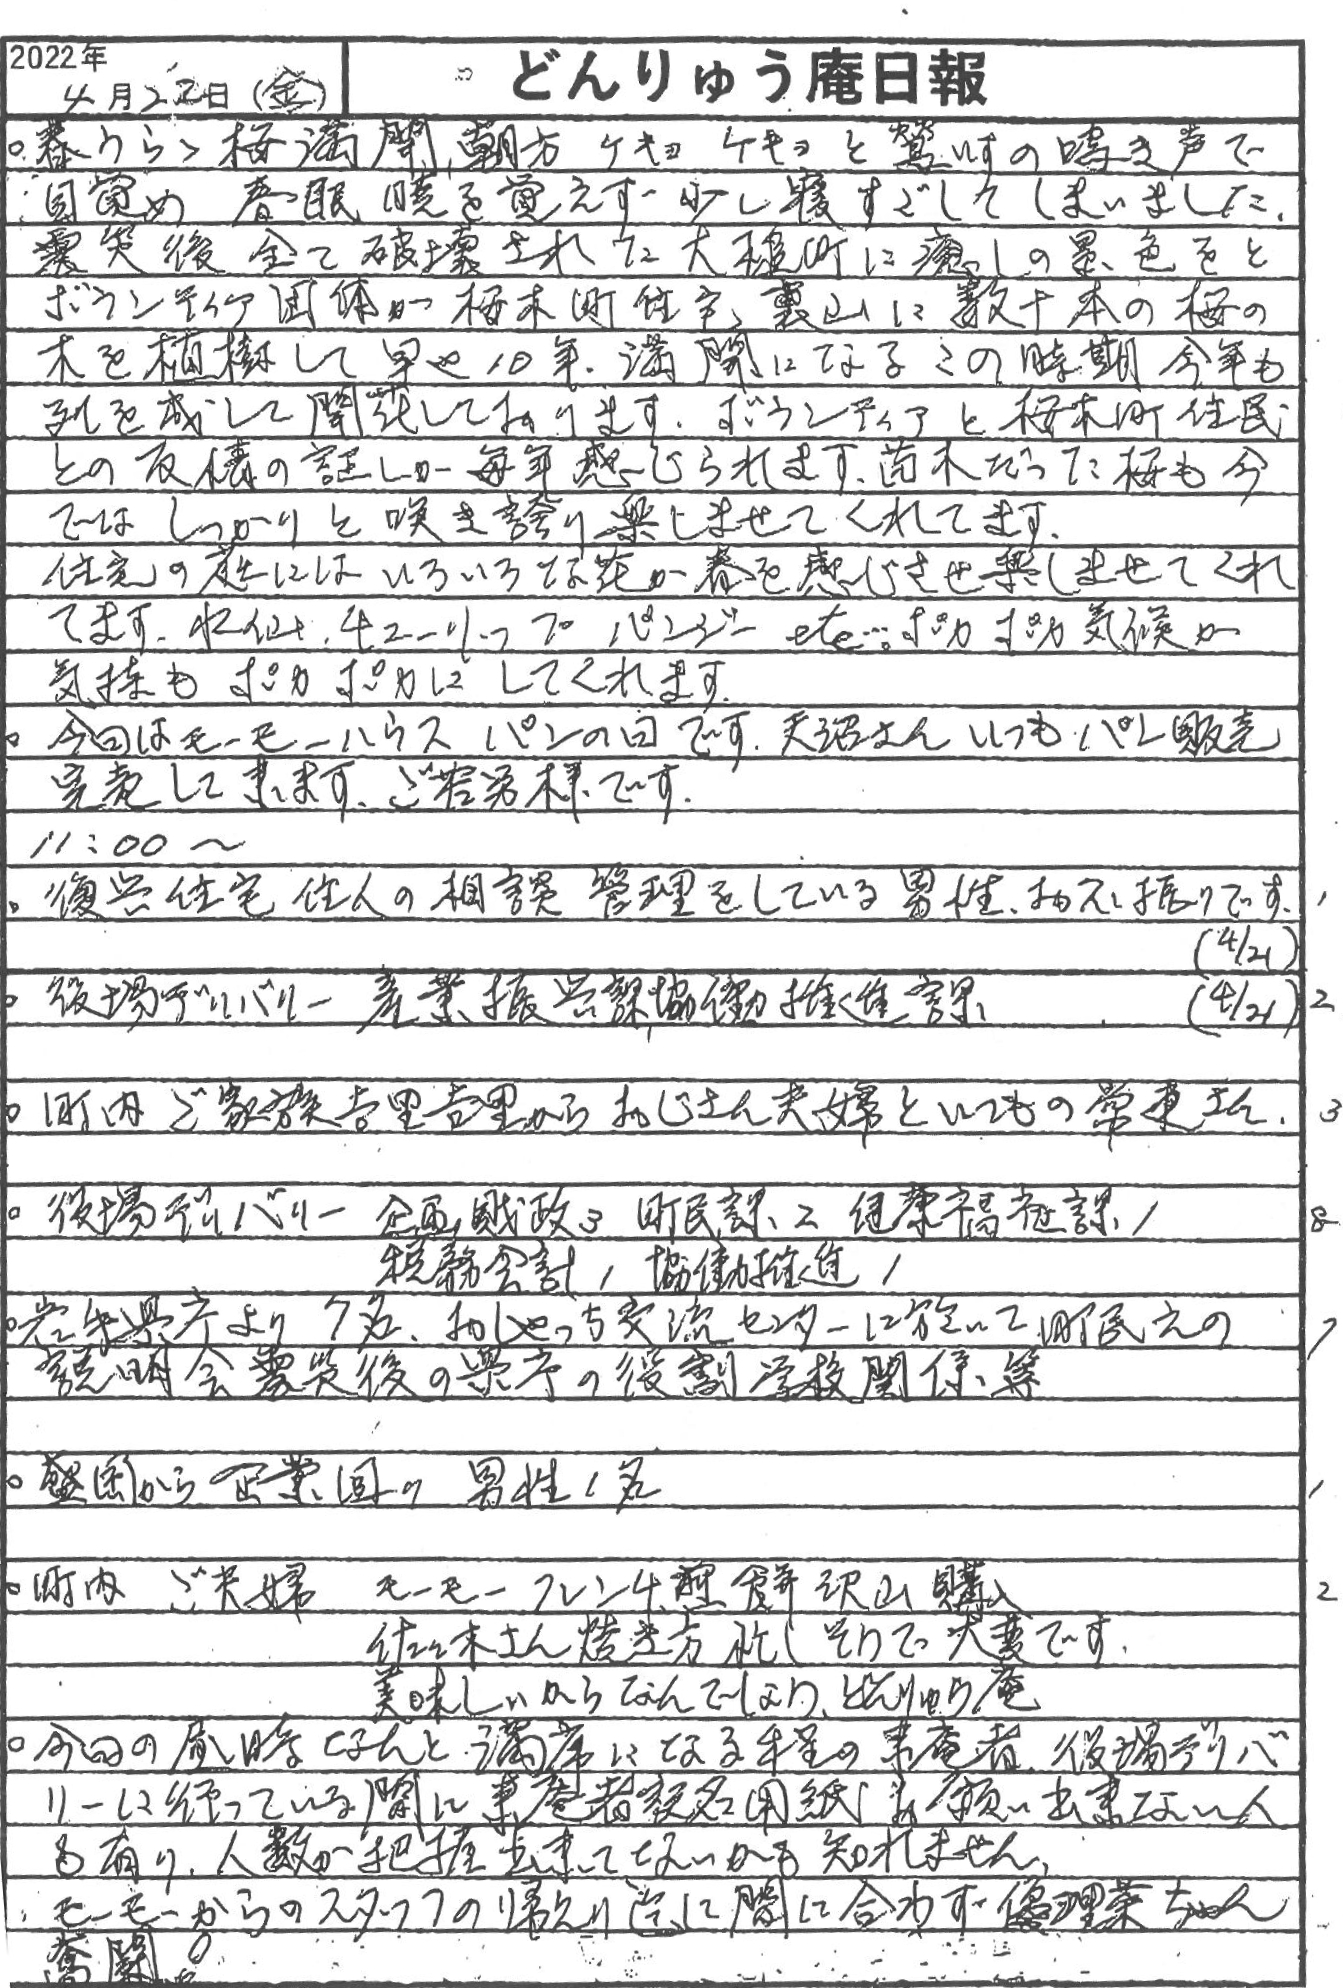 2022年
4月22日(金)
どんりゅう庵日報
○春うらゝ桜満開、朝方 ケキョ ケキョと鶯の鳴き声で
目覚め 春眠暁を覚えず 少し寝すごしてしまいました。
震災後全て破壊された大槌町に癒しの景色をと
ボランティア団体が桜木町住宅、裏山に数十本の桜の
木を植樹して早や10年、満開になるこの時期 今年も
列を成して開花しております。ボランティアと桜木町住民
との 証しが毎年感じられます。苗木だった桜も今
ではしっかりと咲き誇り楽しませてくれてます。
住宅の庭にはいろいろな花が春を感じさせ楽しませてくれ
てます。水仙、チューリップ パンジー etc…ポカポカ気候が
気持もポカポカにしてくれます。
○今日はモーモーハウス パンの日です。天沼さん いつもパン販売
完売して来ます。ご苦労様です。
11:00～
○復興住宅 住人の相談 管理をしている男性、お久し振りです。 1
(4/21)
○役場デリバリー 産業振興課 協働推進課 (4/21) 2
○町内 ご家族 吉里吉里から おじさん夫婦といつもの さん。 3
○役場デリバリー 企画財政3 町民課2 健康福祉課1 8
税務会計1 協働推進1
○岩手県庁より 7名、おしゃっち交流センターに於いて町民えの 7
説明会 震災後の県庁の役割 学校関係等
○盛岡から 企業回り 男性1名 1
○町内 ご夫婦 モーモー フレンチ、煎餅沢山購入 2
佐々木さん焼き方 で大変です。
美味しいからなんでしょう、どんりゅう庵
○今日の昼時なんと満席になる程の来庵者、役場デリバ
リーに行っている間に来庵者数名用紙 お願い出来ない人
も有り、人数が把握出来てないかも知れません。
モーモーからのスタッフの帰えり迄に間に合わず 優理菜ちゃん
奮闘。